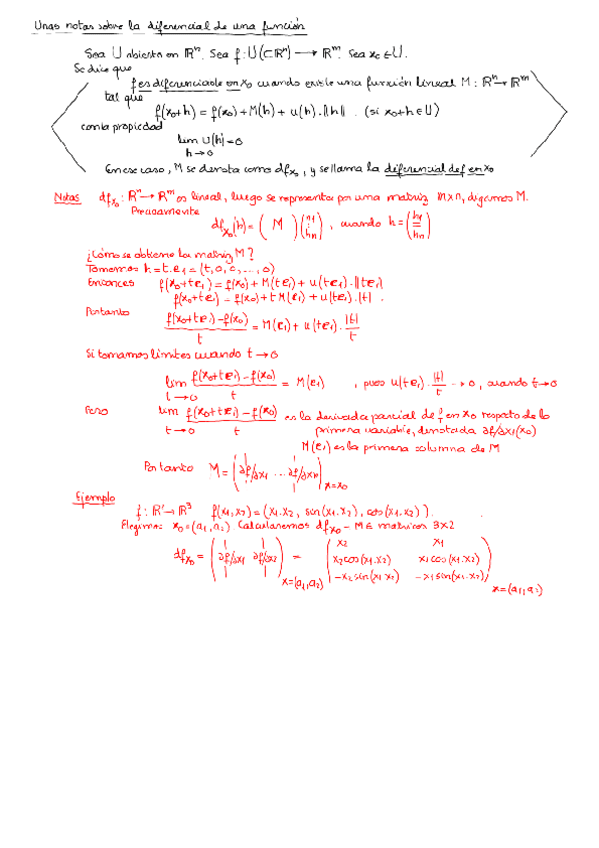 Unas notas sobre la diferencial de una función
Sea U abierto en ℝⁿ. Sea f: U(⊂ℝⁿ) → ℝᵐ. Sea x₀ ∈ U.
Se dice que
f es diferenciable en x₀ cuando existe una función lineal M: ℝⁿ → ℝᵐ
tal que
f(x₀+h) = f(x₀) + M(h) + u(h).‖h‖. (si x₀+h ∈ U)
con la propiedad
lim u(h) = 0
h→0
En ese caso, M se denota como df_x₀, y se llama la diferencial de f en x₀
Notas df_x₀: ℝⁿ → ℝᵐ es lineal, luego se representa por una matriz m×n, digamos M.
Precisamente
df_x₀(h) = ( M ) (h₁ ⋮ hₙ), cuando h = (h₁ ⋮ hₙ)
¿Cómo se obtiene la matriz M?
Tomemos h = t.e₁ = (t, 0, 0, ..., 0)
Entonces f(x₀+te₁) = f(x₀) + M(te₁) + u(te₁).‖te₁‖
f(x₀+te₁) = f(x₀) + t M(e₁) + u(te₁).|t|.
Por tanto (f(x₀+te₁) - f(x₀))/t = M(e₁) + u(te₁).|t|/t
Si tomamos límites cuando t→0
lim t→0 (f(x₀+te₁) - f(x₀))/t = M(e₁), pues u(te₁).|t|/t → 0, cuando t→0
Pero lim t→0 (f(x₀+te₁) - f(x₀))/t es la derivada parcial de f en x₀ respecto de la
primera variable, denotada ∂f/∂x₁(x₀)
M(e₁) es la primera columna de M
Por tanto M = (∂f/∂x₁ ... ∂f/∂xₙ) x=x₀
Ejemplo
f: ℝ² → ℝ³ f(x₁,x₂) = (x₁.x₂, sin(x₁.x₂), cos(x₁.x₂)).
Elegimos x₀=(a₁,a₂) Calcularemos df_x₀ - M ∈ matrices 3×2
df_x₀ = (∂f/∂x₁ ∂f/∂x₂) x=(a₁,a₂) = (x₂ x₁
x₂cos(x₁.x₂) x₁cos(x₁.x₂)
-x₂sin(x₁.x₂) -x₁sin(x₁.x₂)) x=(a₁,a₂)